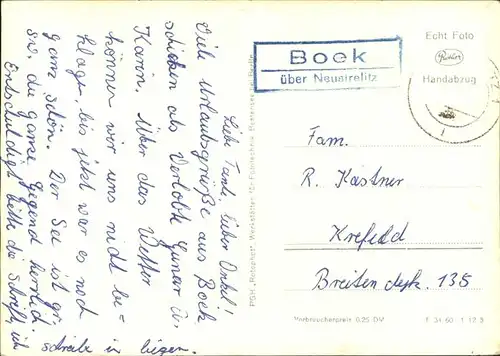 Liebe Tante, lieber Onkel!
Viele Urlaubsgrüße aus Boek
schicken als Verlobte Gunar u.
Karin. Über das Wetter
können wir uns nicht be=
klagen, bis jetzt war es noch
ganz schön. Der See ist gr
die ganze Gegend herrlich.
Entschuldigt bitte die Schrift, ich
schreibe im liegen.
Boek
über Neustrelitz
Echt Foto
Handabzug
Fam.
R. Kastner
Krefeld
Breiten 135
Verbraucherpreis 0,25 DM